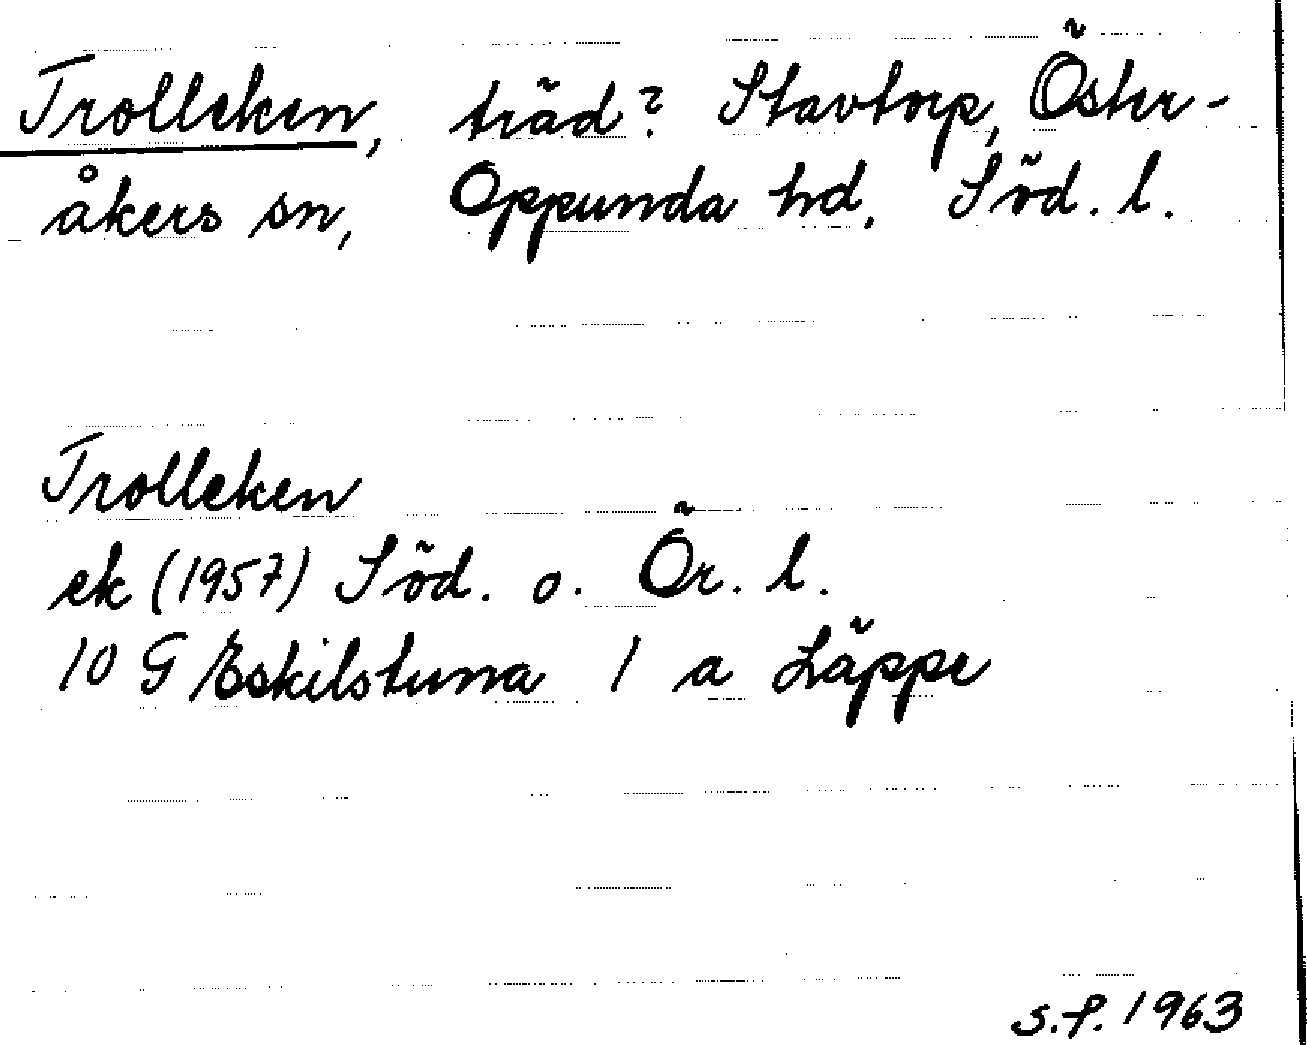 Trolleken, träd? Stavtorp, Öster-
åkers sn, Oppunda hd, Söd. l.
Trolleken
ek (1957) Söd. o. Ör. l.
10 G Eskilstuna 1 a Läppe
S.F. 1963